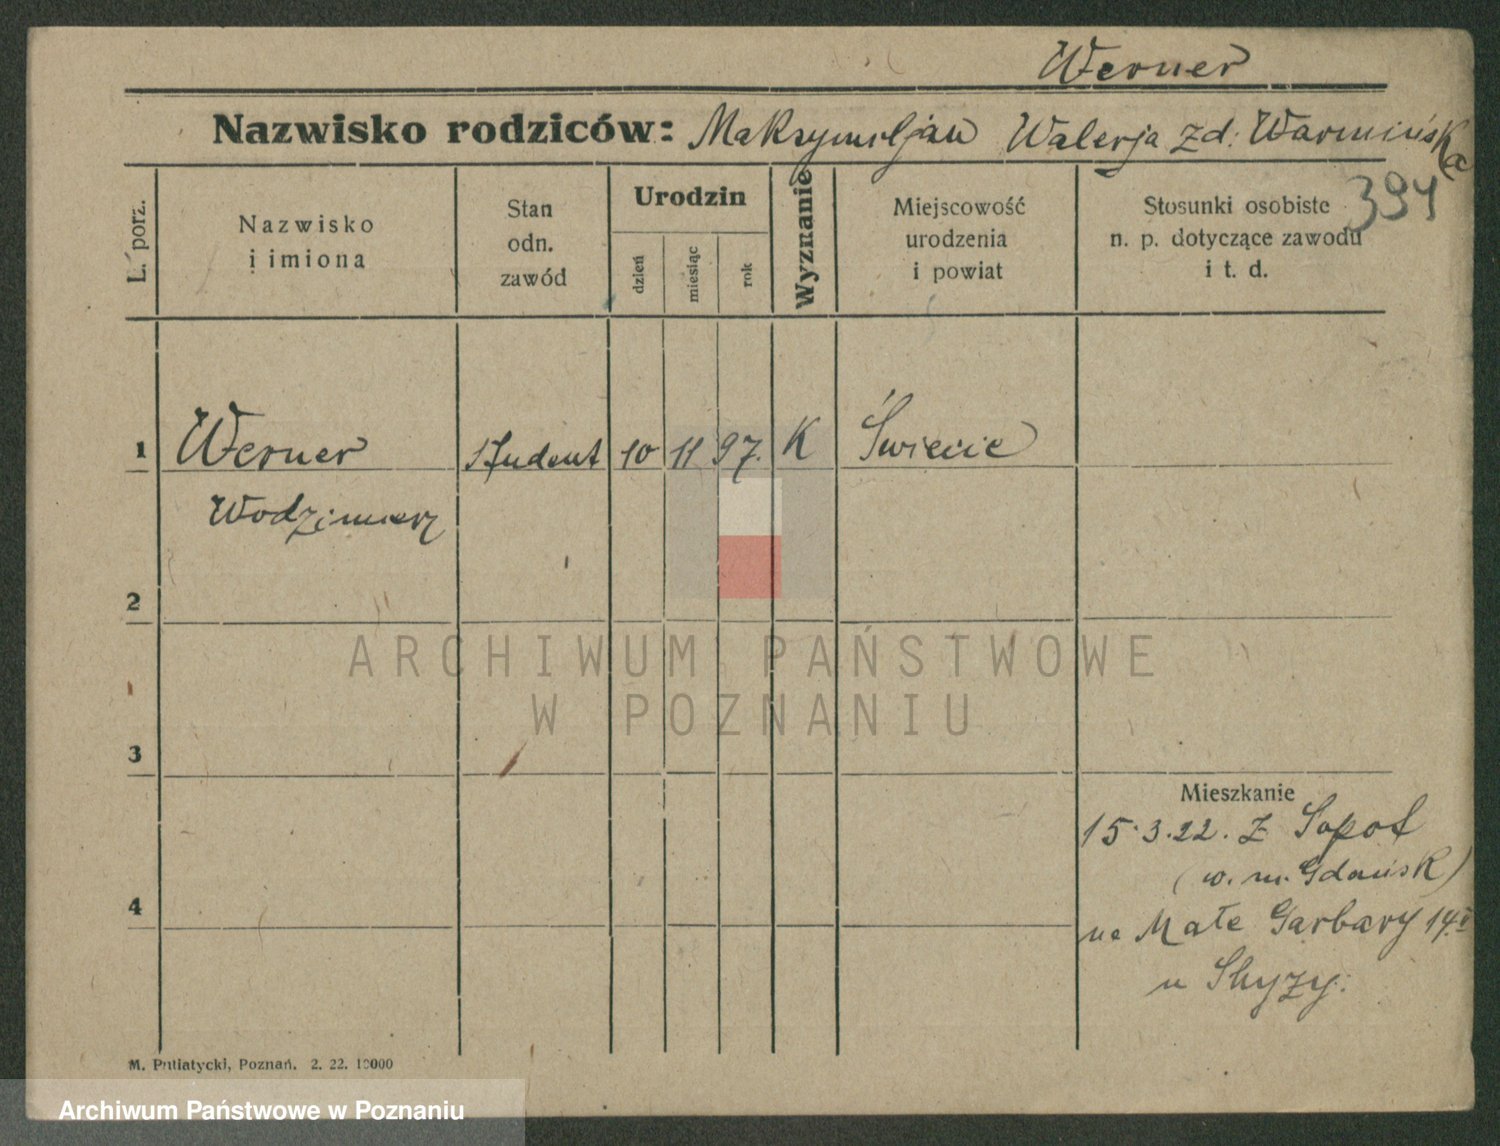 Werner
Nazwisko rodziców: Maksymiljan Walerja zd. Warmińska
394
L. porz.
Nazwisko i imiona
Stan odn. zawód
Urodzin
dzień
miesiąc
rok
Wyznanie
Miejscowość urodzenia i powiat
Stosunki osobiste n. p. dotyczące zawodu i t. d.
1 Werner student 10 11 97. K Świecie
Wodzimierz
2
ARCHIWUM PAŃSTWOWE
W POZNANIU
3
Mieszkanie
15.3.22. z Sopot
(w. m. Gdańsk)
4
na Małe Garbary 14
u
M. Putiatycki, Poznań. 2. 22. 10000
Archiwum Państwowe w Poznaniu